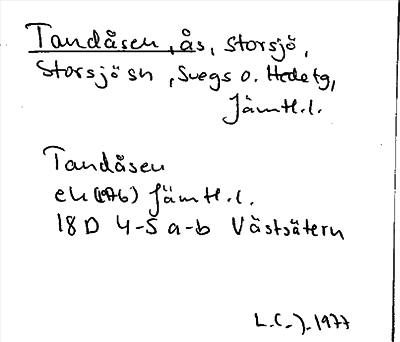 Tandåsen, ås, Storsjö,
Storsjö sn, Svegs o. Hede tg,
Jämtl.l.
Tandåsen
ek (1976) Jämtl.l.
18D 4-5 a-b Västsätern
L.(-). 1977